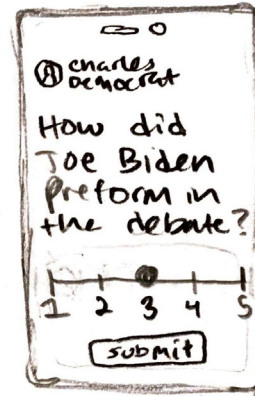 charles
Democrat
How did
Joe Biden
Preform in
the debate?
1 2 3 4 5
submit